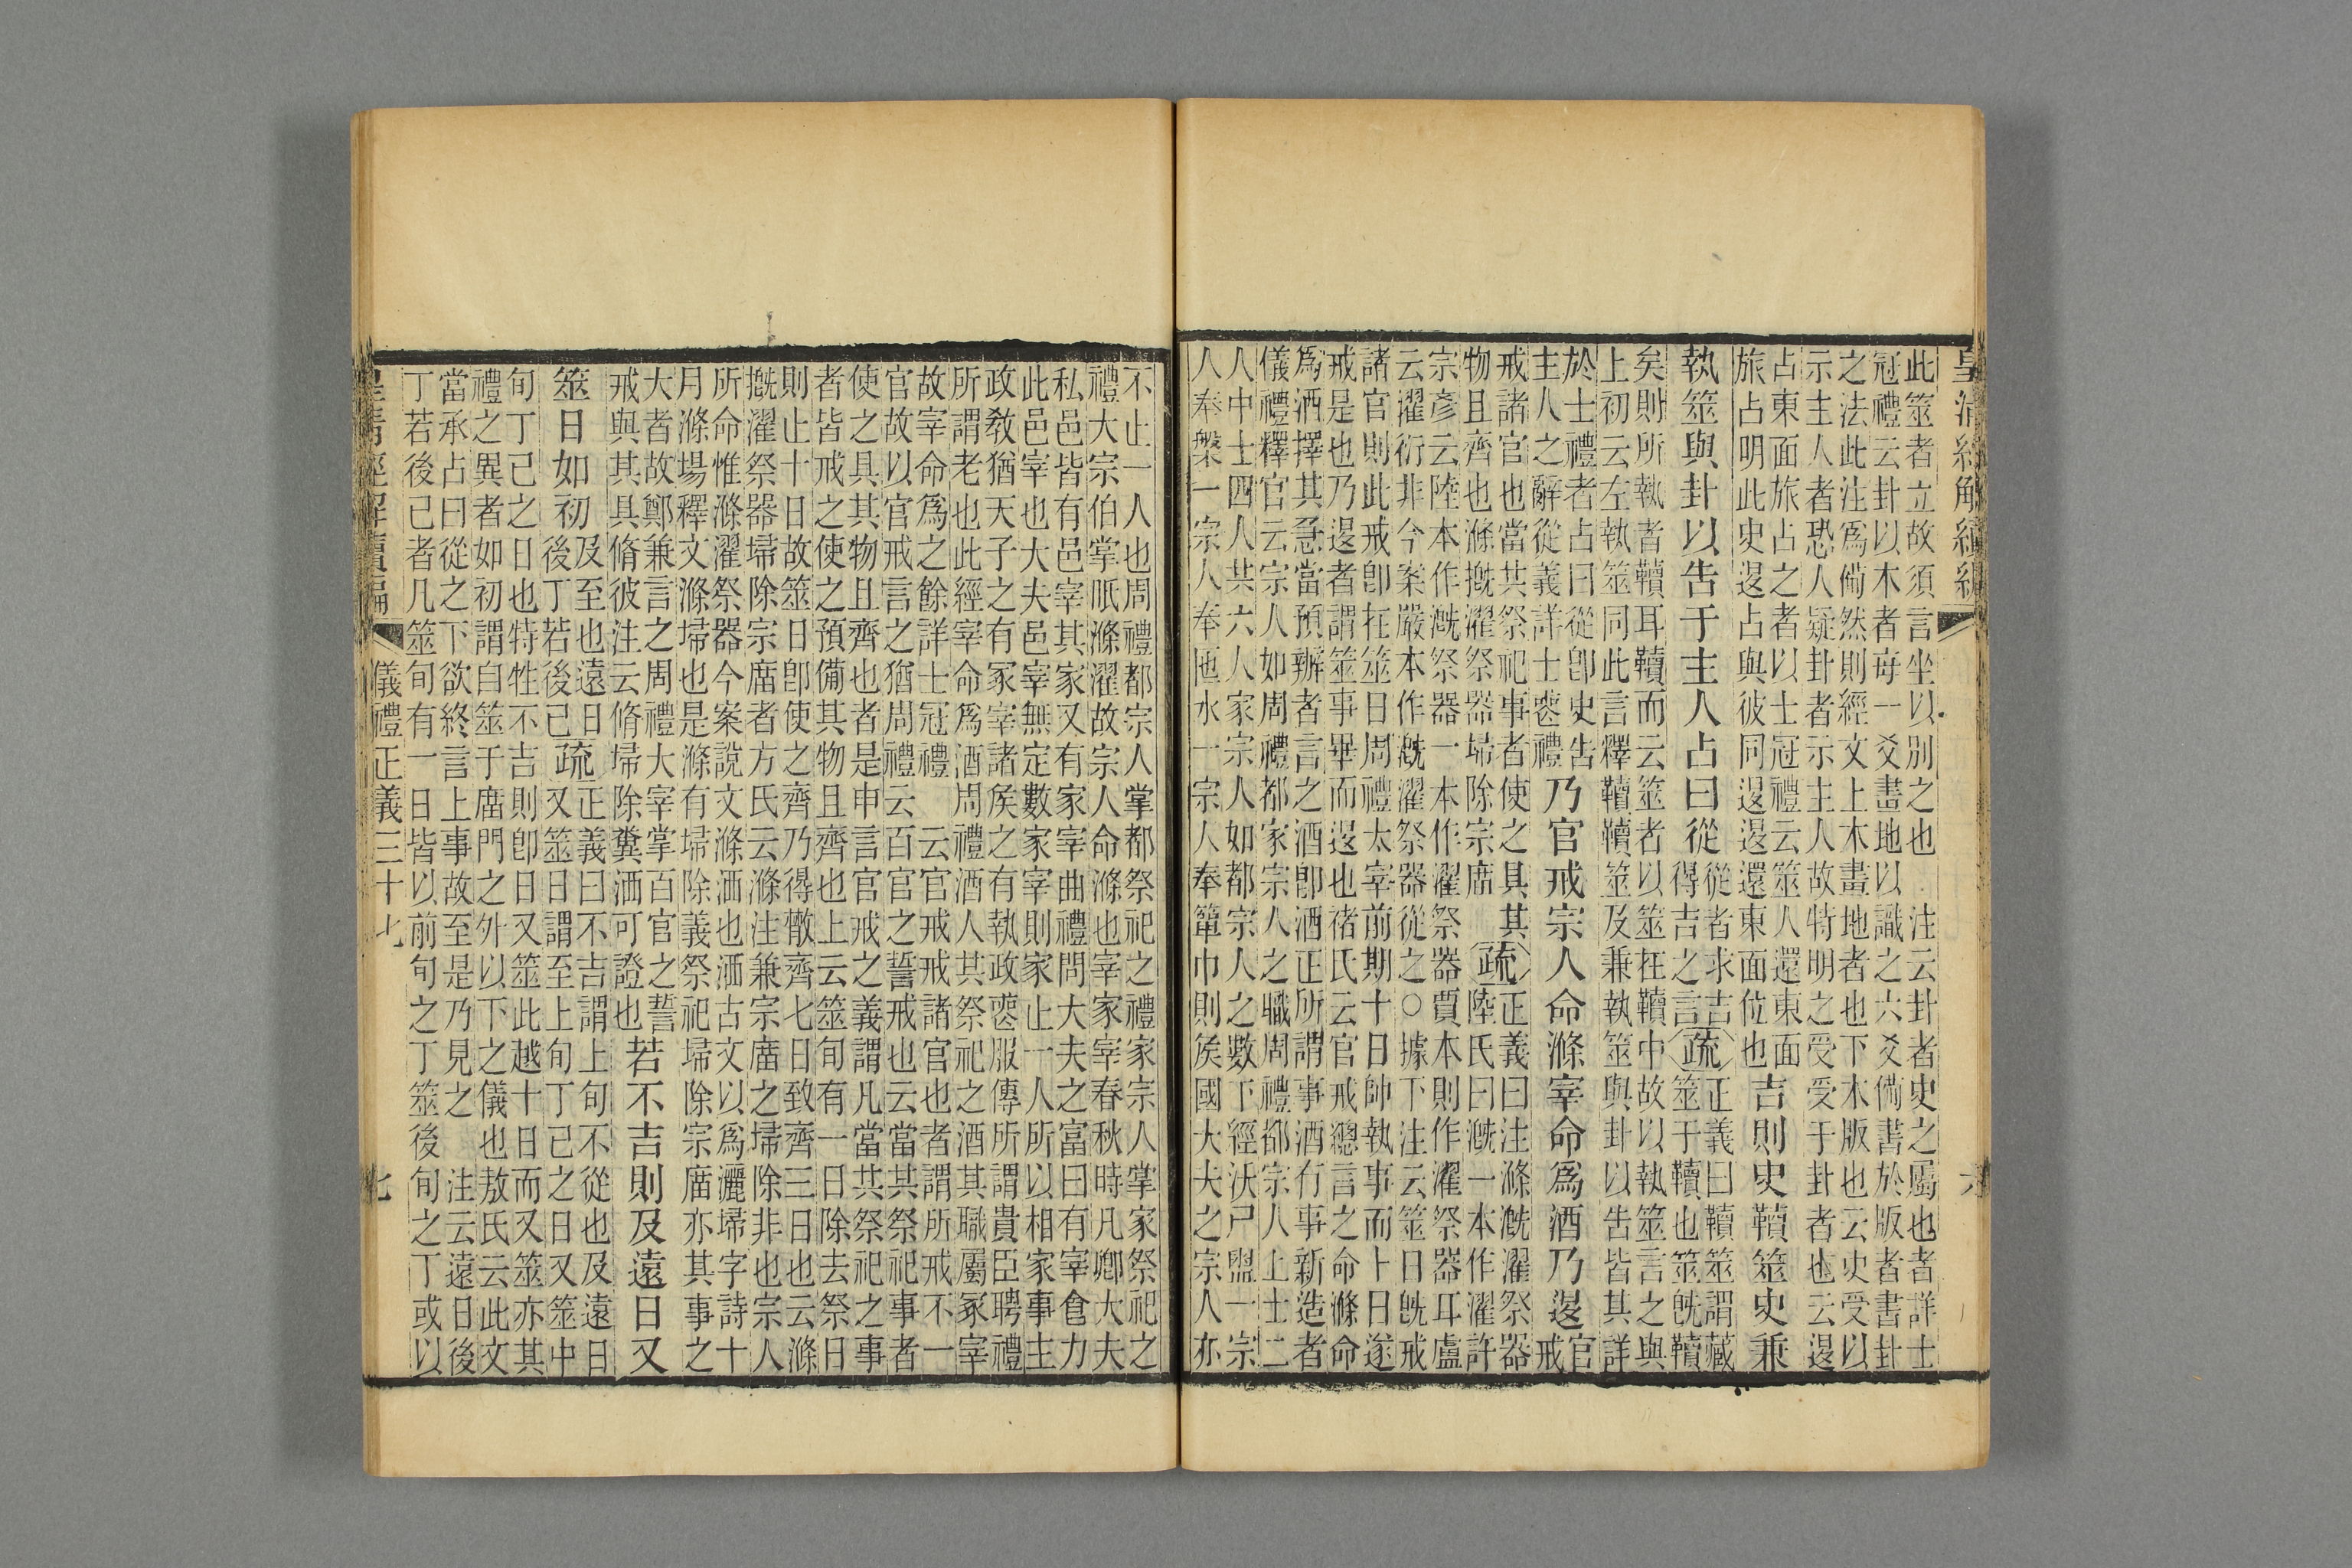 皇清經解續編
六
此筮者立故須言坐以別之也　注云卦者史之屬也者詳士
冠禮云卦以木者每一爻畫地以識之六爻備書於版者書卦
之法此注爲備然則經文上木畫地者也下木版也云史受以
示主人者恐人疑卦者示主人故特明之受受于卦者也云退
占東面旅占之者以士冠禮云筮人還東面
旅占明此史退占與彼同退退還東面位也
吉則史韇筮史兼
執筮與卦以告于主人占曰從
從者求吉
得吉之言
疏
正義曰韇筮謂藏
筮于韇也筮旣韇
矣則所執者韇耳韇而云筮者以筮在韇中故以執筮言之與
上初云左執筮同此言釋韇韇筮及兼執筮與卦以告皆其詳
於士禮者占曰從卽史告
主人之辭從義詳士喪禮
乃官戒宗人命滌宰命爲酒乃退
官
戒
戒諸官也當其祭祀事者使之具其
物且齊也滌摡濯祭器埽除宗廟
疏
正義曰注滌漑濯祭器
陸氏曰漑一本作濯許
宗彥云陸本作漑祭器一本作濯祭器賈本則作濯祭器耳盧
云濯衍非今案嚴本作漑濯祭器從之○據下注云筮日旣戒
諸官則此戒卽在筮日周禮太宰前期十日帥執事而卜日遂
戒是也乃退者謂筮事畢而退也褚氏云官戒總言之命滌命
爲酒擇其急當預辦者言之酒卽酒正所謂事酒有事新造者
儀禮釋官云宗人如周禮都家宗人之職周禮都宗人上士二
人中士四人共六人家宗人如都宗人之數下經沃尸盥一宗
人奉槃一宗人奉匜水一宗人奉簞巾則侯國大夫之宗人亦
不止一人也周禮都宗人掌都祭祀之禮家宗人掌家祭祀之
禮大宗伯掌眂滌濯故宗人命滌也宰家宰春秋時凡卿大夫
私邑皆有邑宰其家又有家宰曲禮問大夫之富曰有宰食力
此邑宰也大夫邑宰無定數家宰則家止一人所以相家事主
政敎猶天子之有冢宰諸侯之有執政喪服傳所謂貴臣聘禮
所謂老也此經宰命爲酒周禮酒人其祭祀之酒其職屬冢宰
故宰命爲之餘詳士冠禮　云官戒戒諸官也者謂所戒不一
官故以官戒言之猶周禮云百官之誓戒也云當共祭祀事者
使之具其物且齊也者是申言官戒之義謂凡當共祭祀之事
者皆戒之使之預備其物且齊也上云筮旬有一日除去祭日
則止十日故筮日卽使之齊乃得散齊七日致齊三日也云滌
摡濯祭器埽除宗廟者方氏云滌注兼宗廟之埽除非也宗人
所命惟滌濯祭器今案說文滌洒也洒古文以爲灑埽字詩十
月滌場釋文滌埽也是滌有埽除義祭祀埽除宗廟亦其事之
大者故鄭兼言之周禮大宰掌百官之誓
戒與其具脩彼注云脩埽除糞洒可證也
若不吉則及遠日又
筮日如初
及至也遠日
後丁若後己
疏
正義曰不吉謂上旬不從也及遠日
又筮日謂至上旬丁己之日又筮中
旬丁己之日也特牲不吉則卽日又筮此越十日而又筮亦其
禮之異者如初謂自筮于廟門之外以下之儀也敖氏云此文
當承占曰從之下欲終言上事故至是乃見之　注云遠日後
丁若後己者凡筮旬有一日皆以前旬之丁筮後旬之丁或以
皇清經解續編
儀禮正義三十七
七